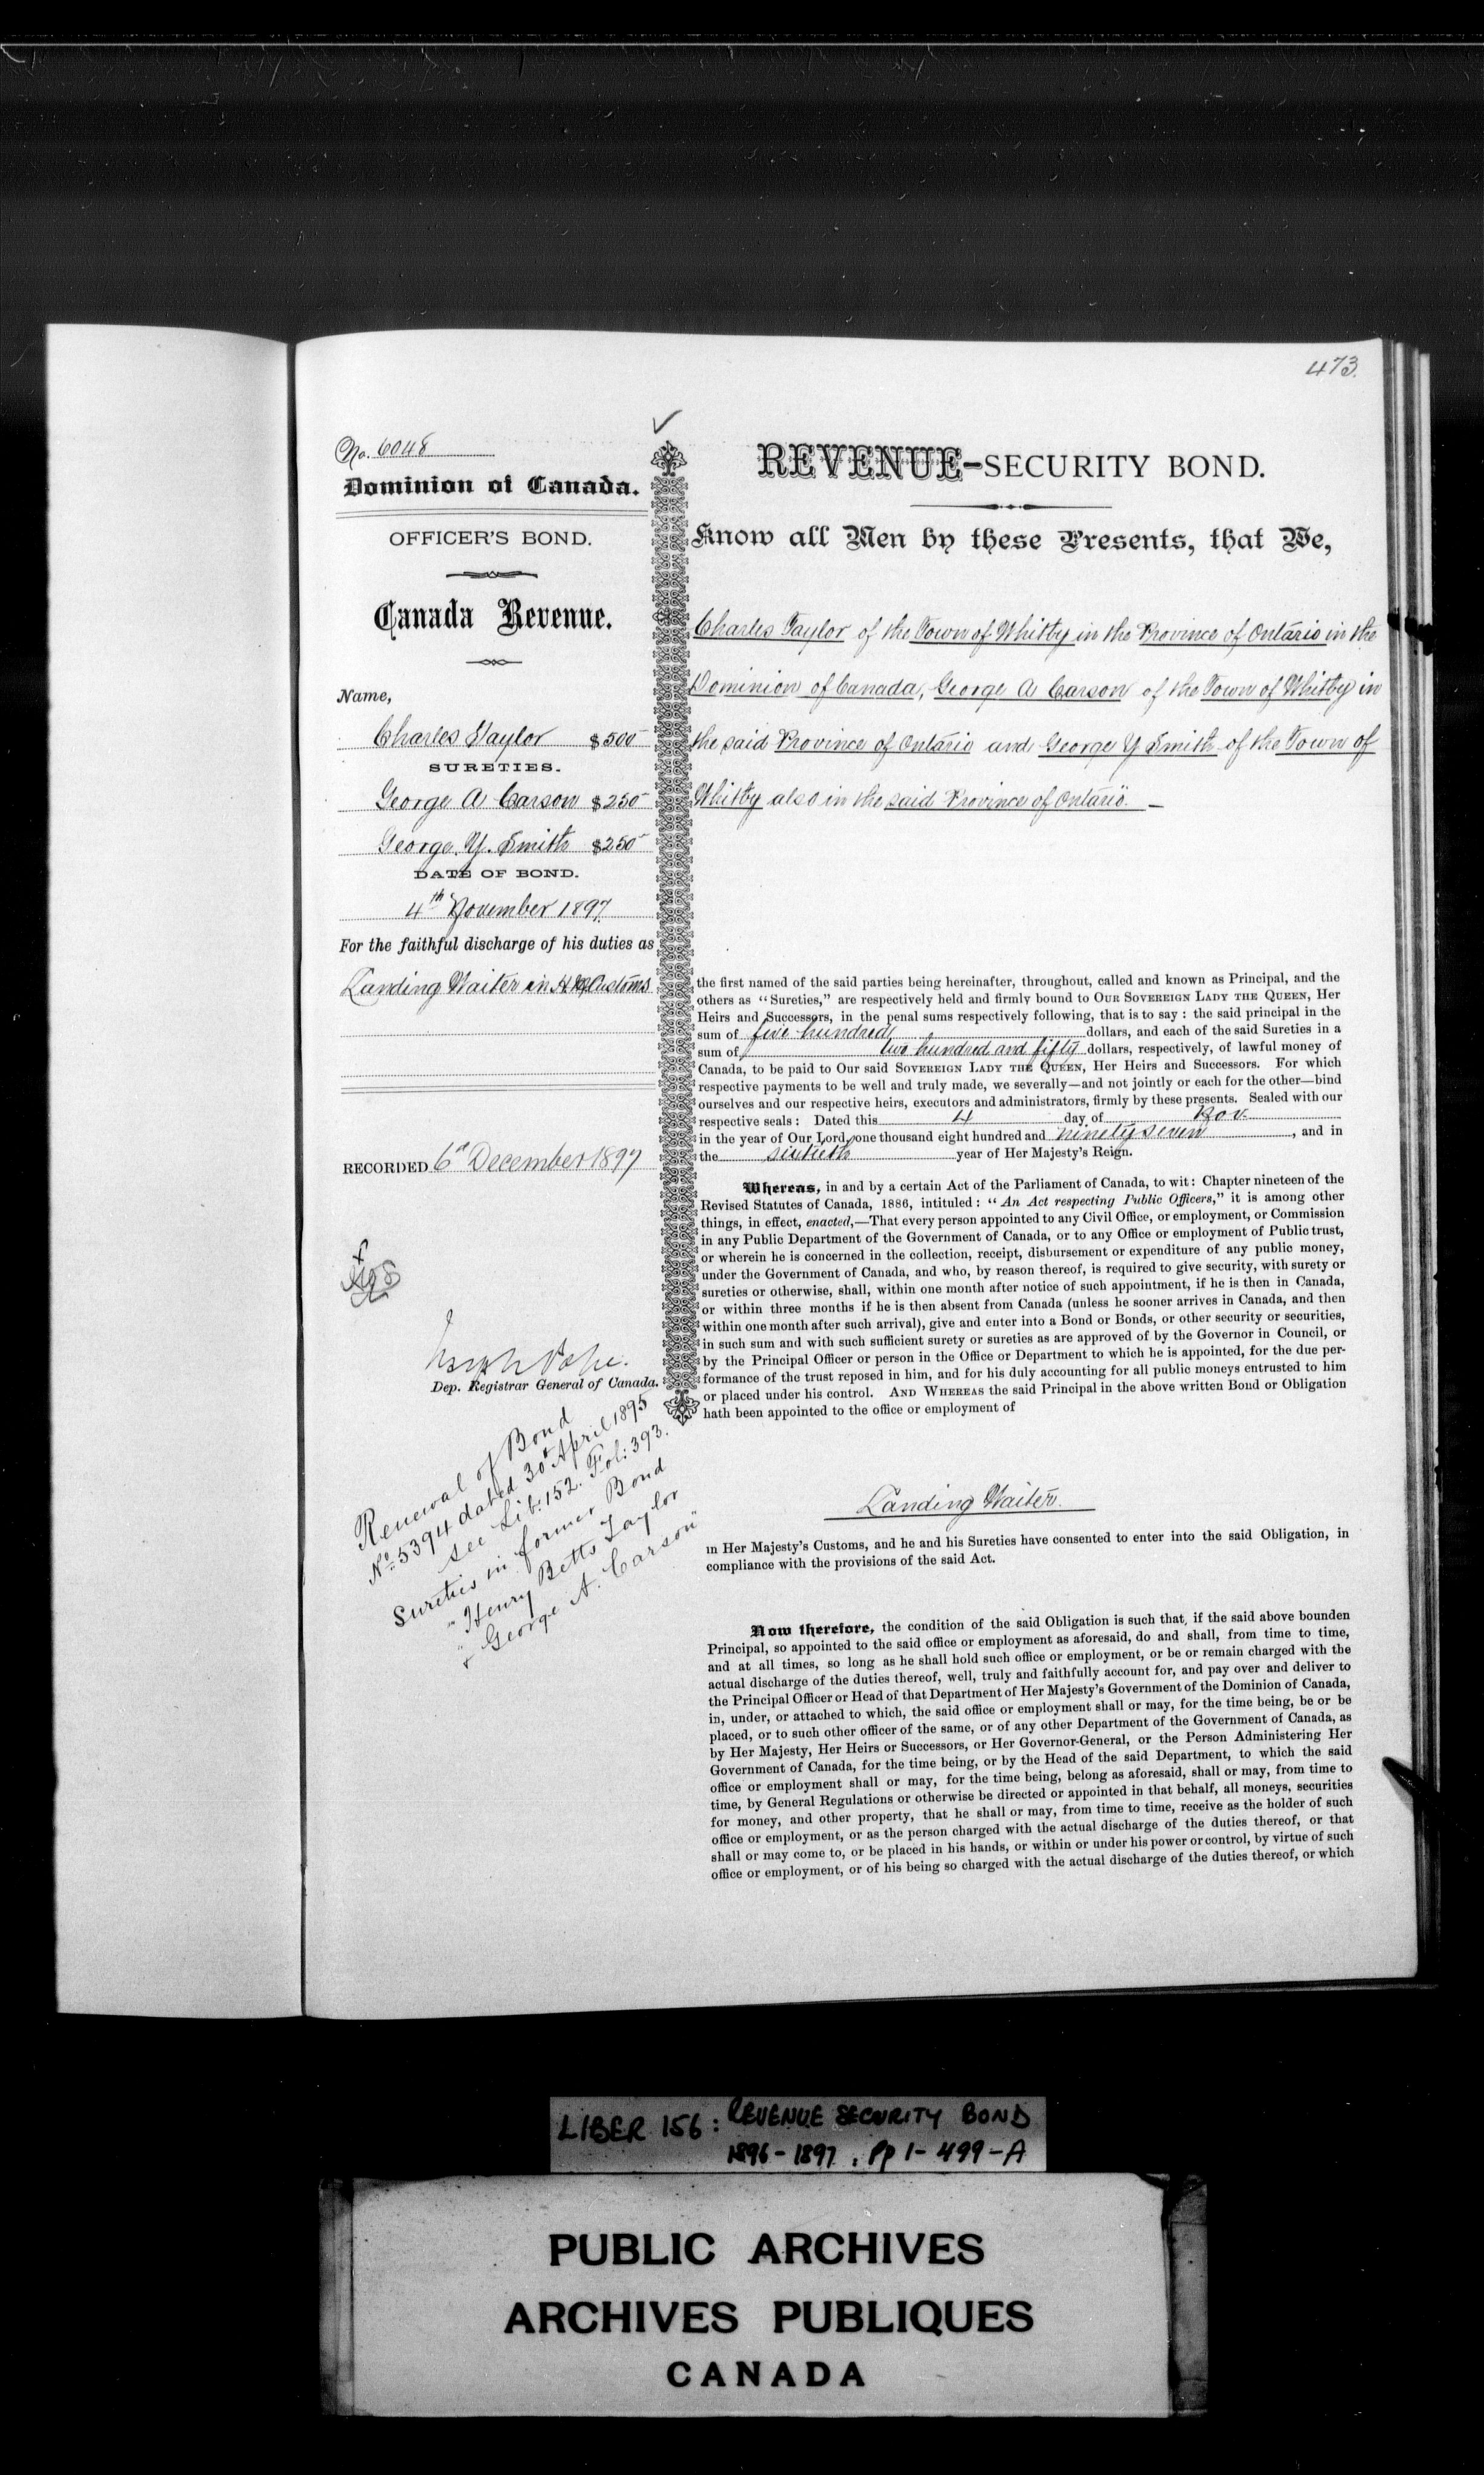 473.
No. 6048
Dominion of Canada.
OFFICER'S BOND.
Canada Revenue.
Name,
Charles Taylor $500
SURETIES.
George A Carson $250
George Y. Smith $250
DATE OF BOND.
4th November 1897.
For the faithful discharge of his duties as
Landing Waiter in H.M. Customs
RECORDED 6th December 1897
Joseph Pope.
Dep. Registrar General of Canada.
Renewal of Bond
No. 5394 dated 30th April 1895
see Lib: 152. Fol: 393.
Sureties in former Bond
"Henry Betts Taylor
"George A. Carson"
REVENUE-SECURITY BOND.
Know all Men by these Presents, that We,
Charles Taylor of the Town of Whitby in the Province of Ontario in the
Dominion of Canada, George A Carson of the Town of Whitby in
the said Province of Ontario and George Y Smith of the Town of
Whitby also in the said Province of Ontario. —
the first named of the said parties being hereinafter, throughout, called and known as Principal, and the
others as "Sureties," are respectively held and firmly bound to OUR SOVEREIGN LADY THE QUEEN, Her
Heirs and Successors, in the penal sums respectively following, that is to say : the said principal in the
sum of five hundred dollars, and each of the said Sureties in a
sum of two hundred and fifty dollars, respectively, of lawful money of
Canada, to be paid to Our said SOVEREIGN LADY THE QUEEN, Her Heirs and Successors. For which
respective payments to be well and truly made, we severally—and not jointly or each for the other—bind
ourselves and our respective heirs, executors and administrators, firmly by these presents. Sealed with our
respective seals : Dated this 4 day of Nov.
in the year of Our Lord, one thousand eight hundred and ninety seven, and in
the sixtieth year of Her Majesty's Reign.
Whereas, in and by a certain Act of the Parliament of Canada, to wit : Chapter nineteen of the
Revised Statutes of Canada, 1886, intituled : "An Act respecting Public Officers," it is among other
things, in effect, enacted,—That every person appointed to any Civil Office, or employment, or Commission
in any Public Department of the Government of Canada, or to any Office or employment of Public trust,
or wherein he is concerned in the collection, receipt, disbursement or expenditure of any public money,
under the Government of Canada, and who, by reason thereof, is required to give security, with surety or
sureties or otherwise, shall, within one month after notice of such appointment, if he is then in Canada,
or within three months if he is then absent from Canada (unless he sooner arrives in Canada, and then
within one month after such arrival), give and enter into a Bond or Bonds, or other security or securities,
in such sum and with such sufficient surety or sureties as are approved of by the Governor in Council, or
by the Principal Officer or person in the Office or Department to which he is appointed, for the due per-
formance of the trust reposed in him, and for his duly accounting for all public moneys entrusted to him
or placed under his control. AND WHEREAS the said Principal in the above written Bond or Obligation
hath been appointed to the office or employment of
Landing Waiter.
in Her Majesty's Customs, and he and his Sureties have consented to enter into the said Obligation, in
compliance with the provisions of the said Act.
Now therefore, the condition of the said Obligation is such that, if the said above bounden
Principal, so appointed to the said office or employment as aforesaid, do and shall, from time to time,
and at all times, so long as he shall hold such office or employment, or be or remain charged with the
actual discharge of the duties thereof, well, truly and faithfully account for, and pay over and deliver to
the Principal Officer or Head of that Department of Her Majesty's Government of the Dominion of Canada,
in, under, or attached to which, the said office or employment shall or may, for the time being, be or be
placed, or to such other officer of the same, or of any other Department of the Government of Canada, as
by Her Majesty, Her Heirs or Successors, or Her Governor-General, or the Person Administering Her
Government of Canada, for the time being, or by the Head of the said Department, to which the said
office or employment shall or may, for the time being, belong as aforesaid, shall or may, from time to
time, by General Regulations or otherwise be directed or appointed in that behalf, all moneys, securities
for money, and other property, that he shall or may, from time to time, receive as the holder of such
office or employment, or as the person charged with the actual discharge of the duties thereof, or that
shall or may come to, or be placed in his hands, or within or under his power or control, by virtue of such
office or employment, or of his being so charged with the actual discharge of the duties thereof, or which
LIBER 156 : REVENUE SECURITY BOND
1896-1897. Pp 1-499-A
PUBLIC ARCHIVES
ARCHIVES PUBLIQUES
CANADA